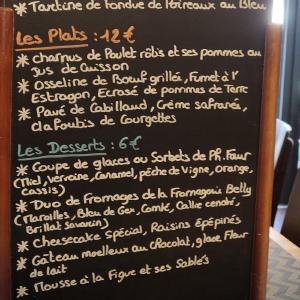 * Tartine de fondue de Poireaux au Bleu
Les Plats : 12 €
* charnus de Poulet rôtis et ses pommes au
jus de Cuisson
* Osseline de Bœuf grillé, Fumet à l'
Estragon, Ecrasé de pommes de Terre
* Pavé de Cabillaud, Crème safranée,
clafoutis de Courgettes
Les Desserts : 6 €
* Coupe de glaces ou Sorbets de Ph. Faur
(Miel, verveine, Caramel, pêche de Vigne, Orange,
Cassis)
* Duo de Fromages de la Fromagerie Betty
(Maroilles, Bleu de Gex, Comté, Callie cendré,
Brillat Savarin)
* Cheesecake Spécial, Raisins Épépinés
* Gâteau moelleux au Chocolat, glace Fleur
de lait
* Mousse à la Figue et ses Sablés